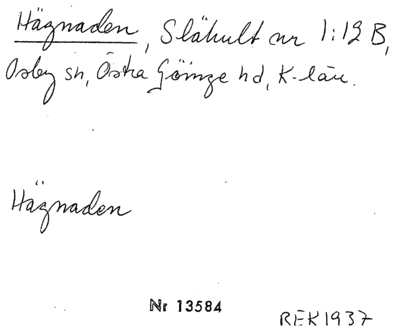 Hägnaden, Slähult nr 1:19 B,
Osby sn, Östra Göinge hd, K-län.
Hägnaden
Nr 13584
REK 1937